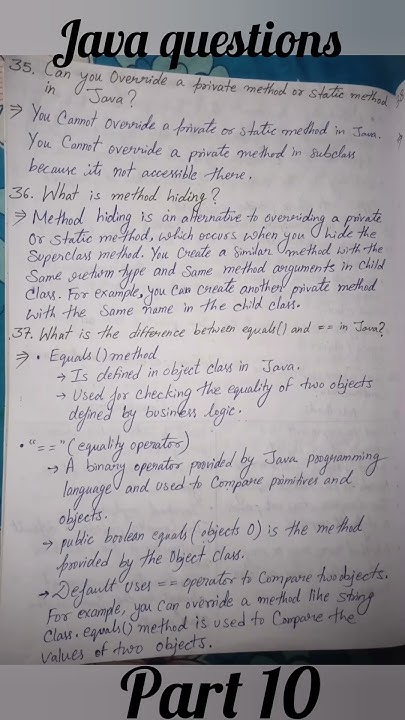 Java questions
35. Can you Override a private method or static method
in Java?
⇒ You Cannot override a private or static method in Java.
You Cannot override a private method in subclass
because its not accessible there.
36. What is method hiding?
⇒ Method hiding is an alternative to overriding a private
Or static method, which occurs when you hide the
Superclass method. You Create a Similar method with the
Same return type and Same method arguments in child
Class. For example, you can create another private method
with the Same name in the child class.
37. What is the difference between equals() and == in Java?
⇒ • Equals() method
→ Is defined in object class in Java.
→ Used for checking the equality of two objects
defined by business logic.
• "==" (equality operator)
→ A binary operator provided by Java programming
language and used to Compare primitives and
objects.
→ public boolean equals (objects O) is the method
provided by the Object class.
→ Default uses == operator to Compare two objects.
For example, you can override a method like string
Class. equals() method is used to Compare the
values of two objects.
Part 10